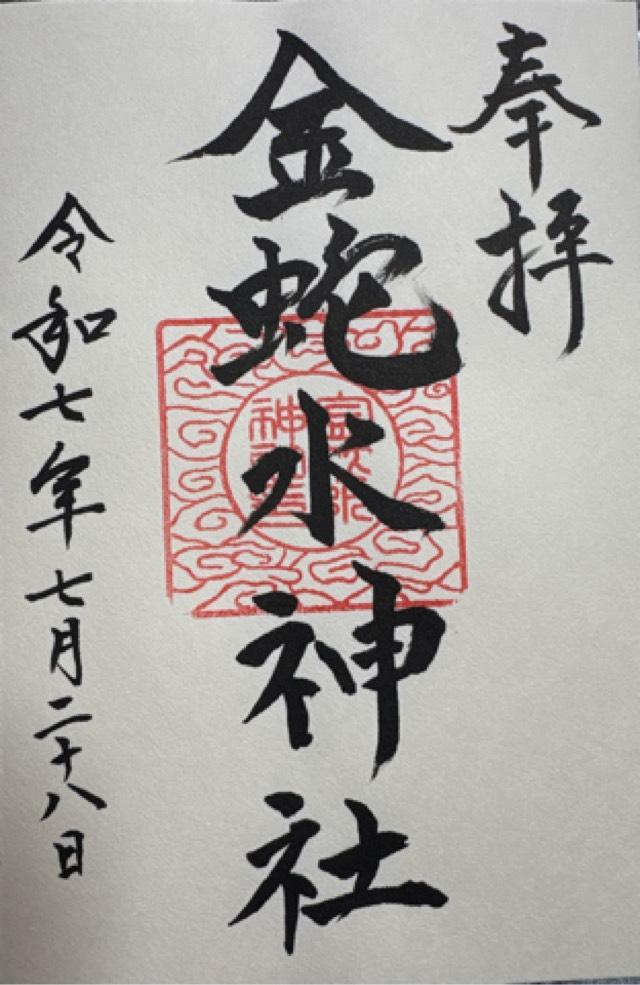 奉拝
金蛇水神社
令和七年七月二十八日